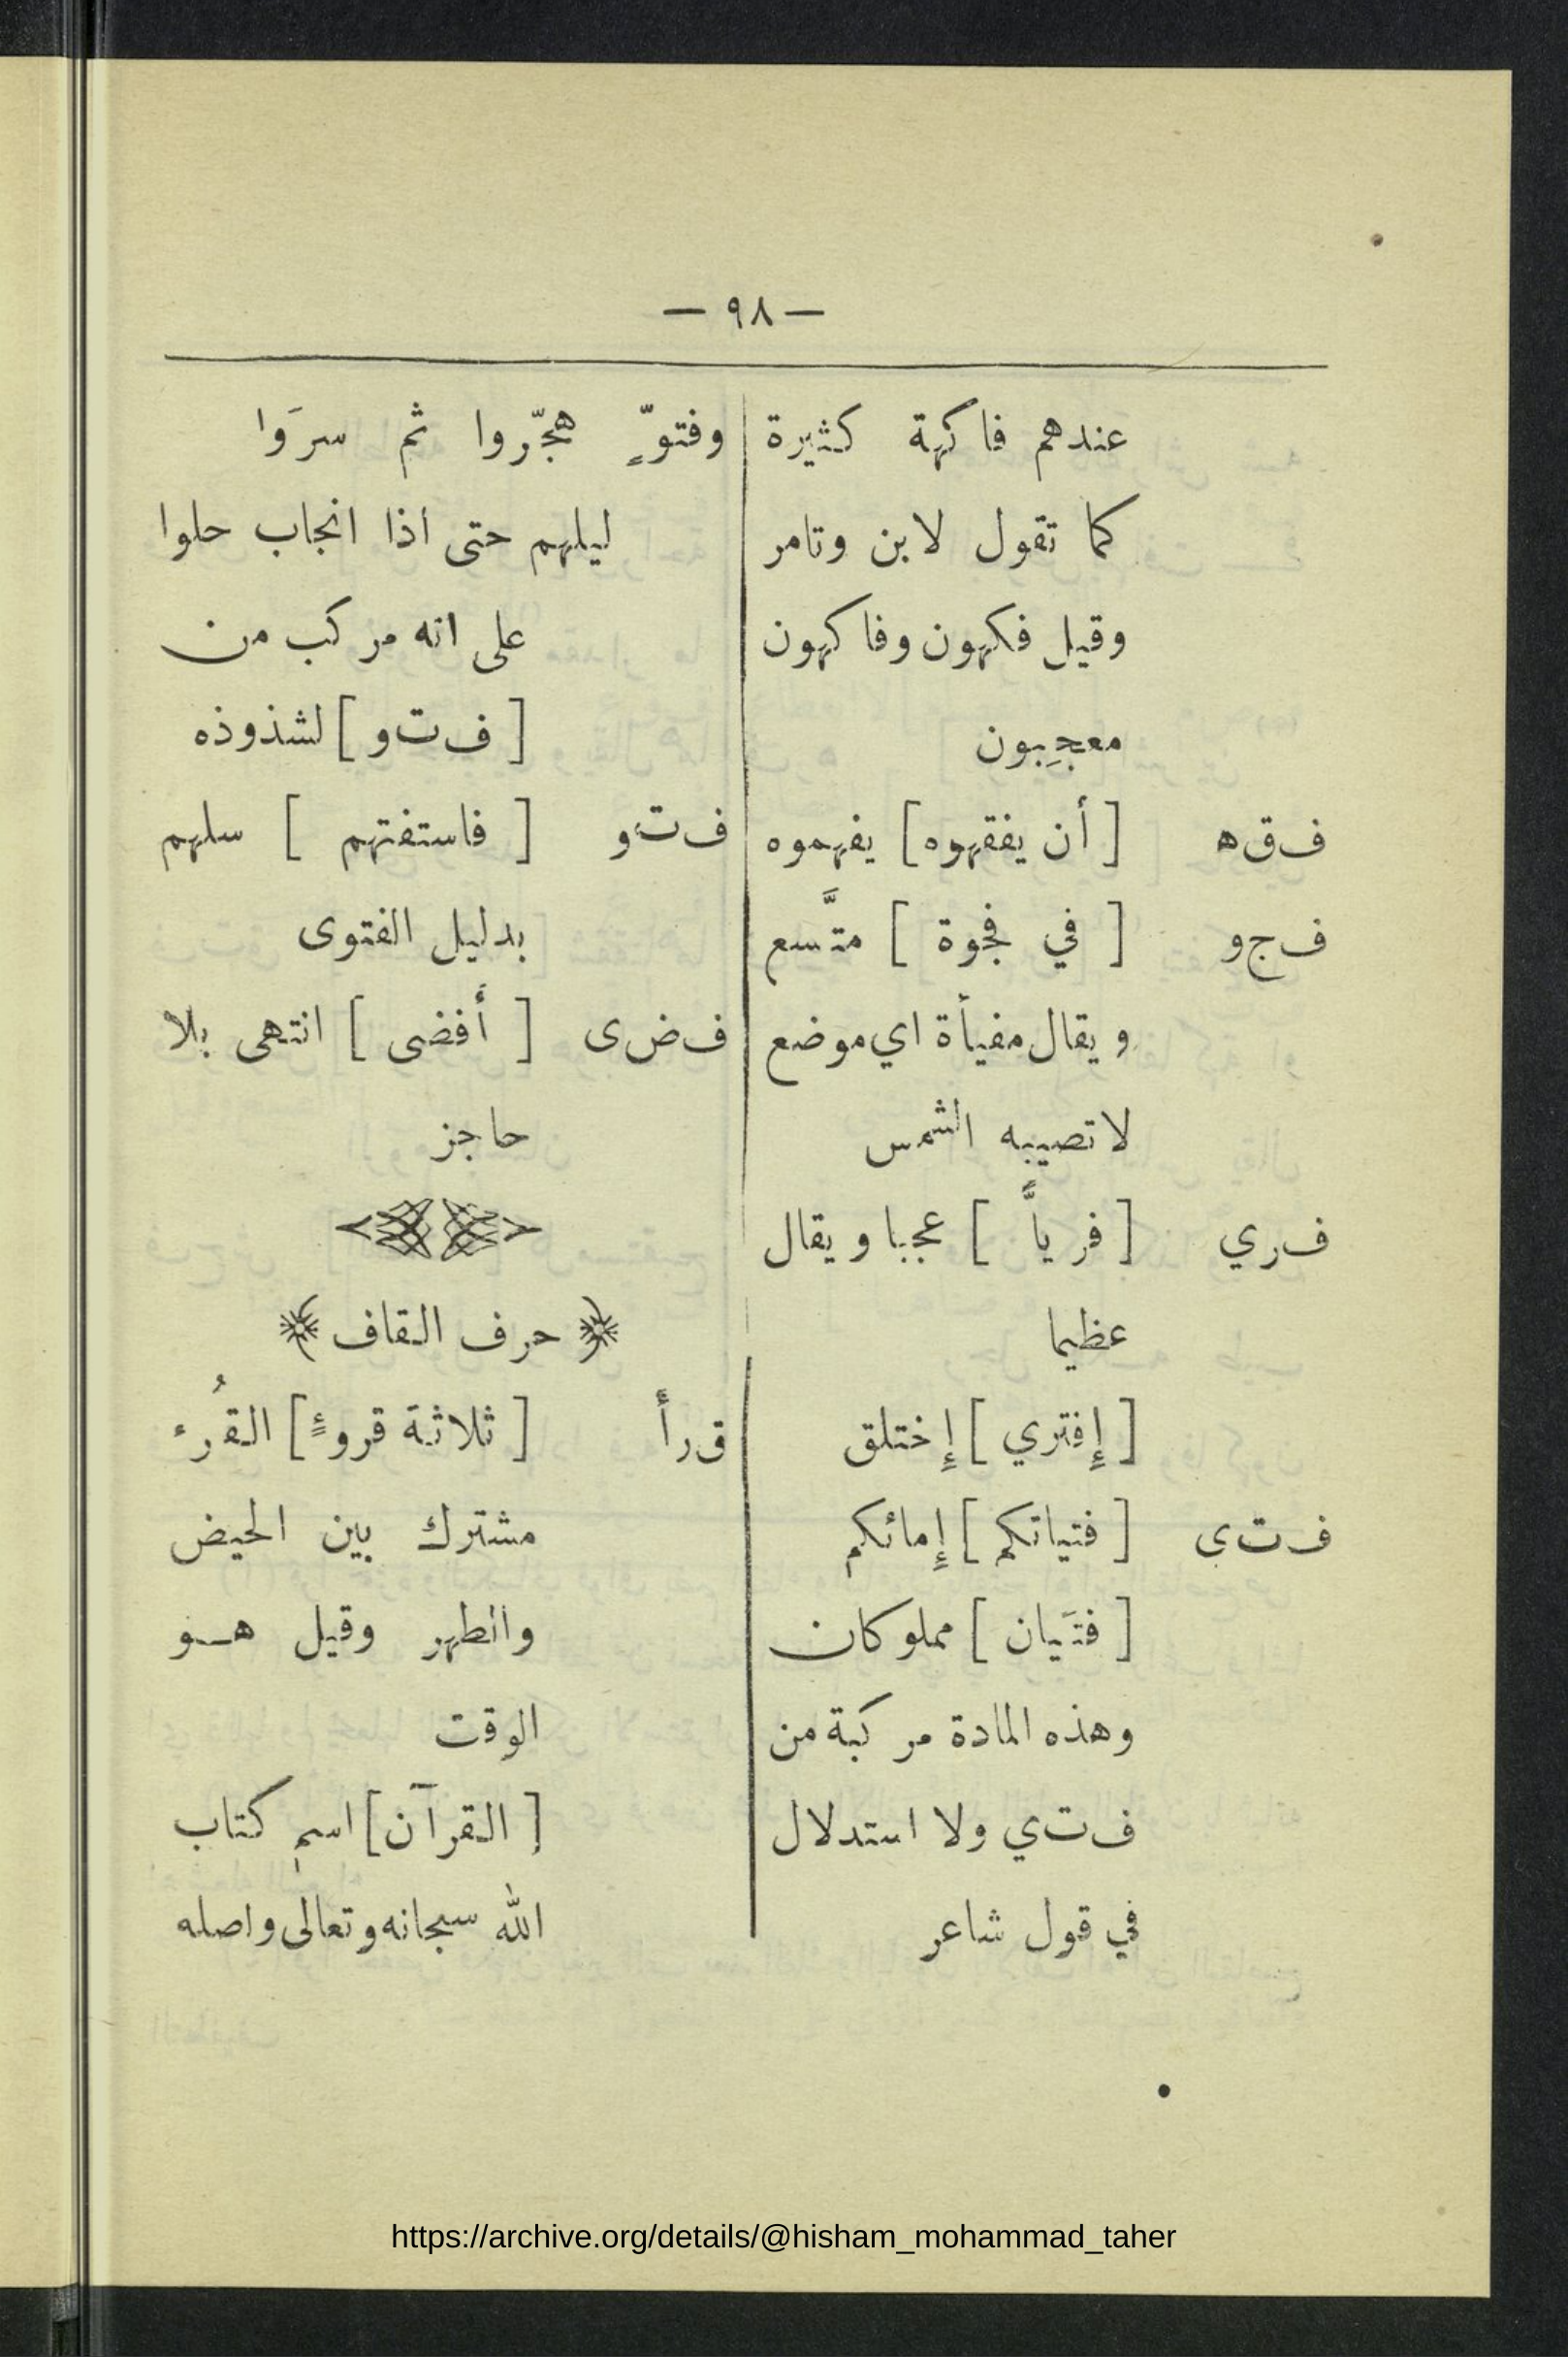 — ٩٨ —
عندهم فاكهة كثيرة
كما تقول لابن وتامر
وقيل فكهون وفاكهون
معجِبون
ف ق ه [ أن يفقهوه ] يفهموه
ف ج و [ في فجوة ] متَّسع
ويقال مفيأة اي موضع
لا تصيبه الشمس
ف ر ي [ فرياًّ ] عجبا ويقال
عظيما
[ إِفتري ] إِختلق
ف ت ى [ فتياتكم ] إِمائكم
[ فتَيان ] مملوكان
وهذه المادة مركبة من
ف ت ي ولا استدلال
في قول شاعر
وفتوٍّ هجّروا ثم سرَوا
ليلهم حتى اذا انجاب حلوا
على انه مركب من
[ ف ت و ] لشذوذه
ف ت و [ فاستفتهم ] سلهم
بدليل الفتوى
ف ض ى [ أَفضى ] انتهى بلا
حاجز
﴿ حرف القاف ﴾
ق ر أ [ ثلاثة قروءٍ ] القُرء
مشترك بين الحيض
والطهر وقيل هـو
الوقت
[ القرآن ] اسم كتاب
الله سبحانه وتعالى واصله
https://archive.org/details/@hisham_mohammad_taher